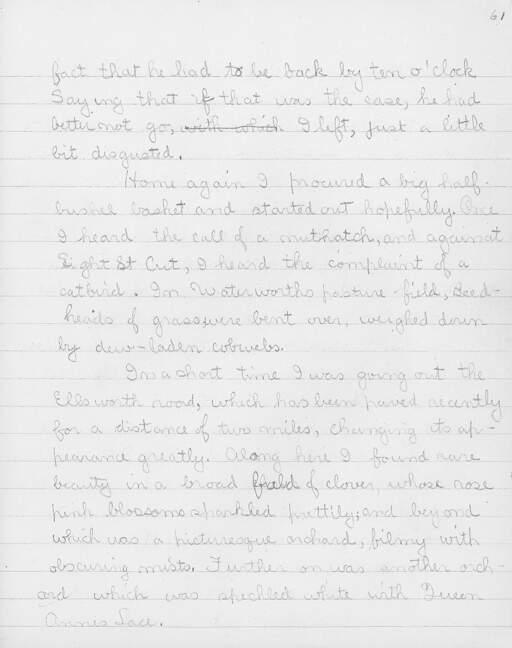 61
fact that he had to be back by ten o'clock
Saying that if that was the case, he had
better not go, with which I left, just a little
bit disgusted.
Home again I procured a big half-
bushel basket and started out hopefully. Once
I heard the call of a nuthatch, and again at
Eight St Cut, I heard the complaint of a
catbird. In Waterworths pasture-field, seed-
heads of grass were bent over, weighed down
by dew-laden cobwebs.
In a short time I was going out the
Ellsworth road, which has been paved recently
for a distance of two miles, changing its ap-
pearance greatly. Along here I found rare
beauty in a broad field of clover, whose rose
pink blossoms sparkled prettily; and beyond
which was a picturesque orchard, filmy with
obscuring mists. Further on was another orch-
ard which was speckled white with Queen
Annes Lace.